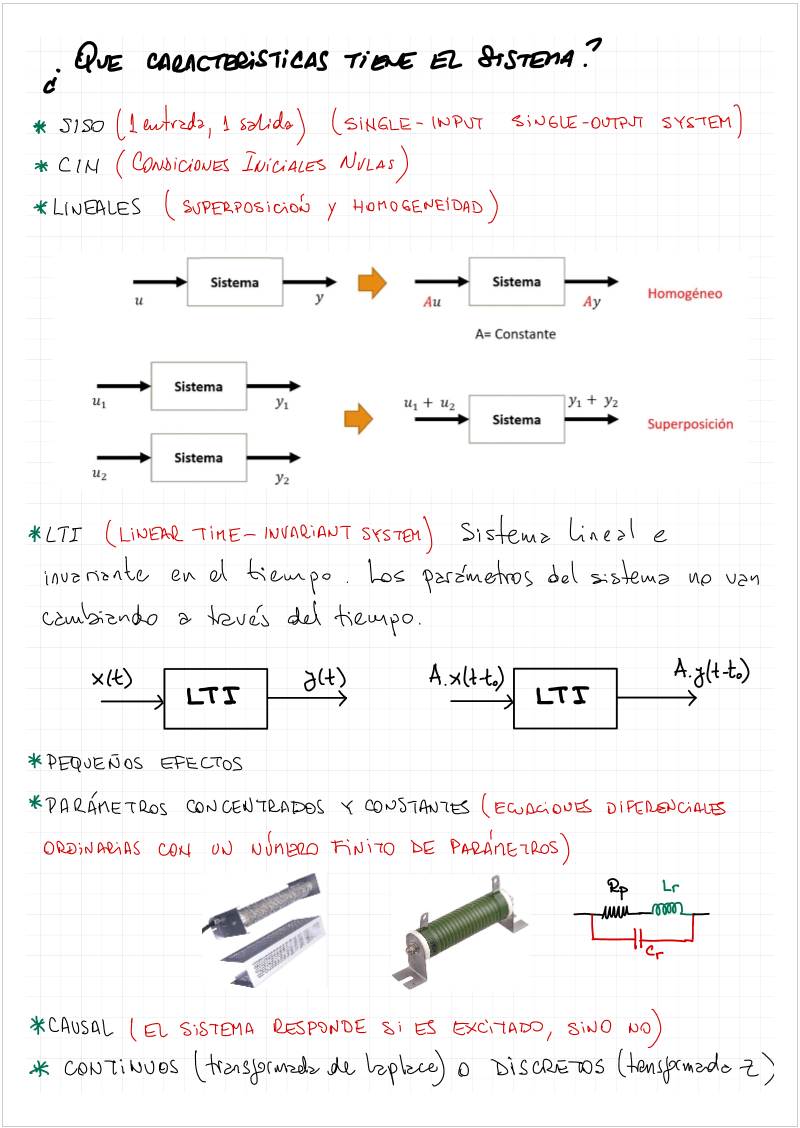 ¿QUE CARACTERISTICAS TIENE EL SISTEMA?
* SISO (1 entrada, 1 salida) (SINGLE-INPUT SINGLE-OUTPUT SYSTEM)
* CIN (CONDICIONES INICIALES NULAS)
* LINEALES (SUPERPOSICIÓN Y HOMOGENEÍDAD)
Sistema Sistema
u y Au Ay Homogéneo
A= Constante
Sistema
u₁ y₁ u₁ + u₂ Sistema y₁ + y₂
Superposición
Sistema
u₂ y₂
* LTI (LINEAR TIME-INVARIANT SYSTEM) Sistema lineal e
invariante en el tiempo. Los parámetros del sistema no van
cambiando a través del tiempo.
x(t) LTI y(t) A.x(t-t₀) LTI A.y(t-t₀)
* PEQUEÑOS EFECTOS
* PARÁMETROS CONCENTRADOS Y CONSTANTES (ECUACIONES DIFERENCIALES
ORDINARIAS CON UN NÚMERO FINITO DE PARÁMETROS)
Rp Lr
Cr
* CAUSAL (EL SISTEMA RESPONDE SI ES EXCITADO, SINO NO)
* CONTINUOS (transformada de laplace) O DISCRETOS (transformada Z)